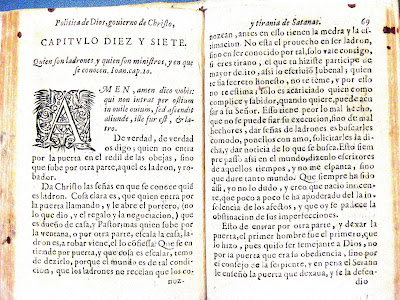 Politica de Dios, gouierno de Christo,
CAPITVLO DIEZ Y SIETE.
Quien son ladrones y quien son ministros, y en que
se conocen. Ioan. cap. 10.
AMEN, amen dico vobis:
qui non intrat per ostium
in ouile ouium, sed ascendit
aliunde, ille fur est, & la-
tro.
De verdad, de verdad
os digo; quien no entra
por la puerta en el redil de las obejas, sino
que sube por otra parte, aquel es ladron, y ro-
bador.
Da Christo las señas en que se conoce quiē
es ladron. Cosa clara es, que quien entra por
la puerta llamando, y le abre el portero, con
lo que dio, y el regalo y la negociacion, q̃ que
es dueño de casa, y Pastor; mas quien sube por
la ventana, o por otra parte, escala la casa, la-
drones, a robar viene, el lo cōfiessa: Que se en-
tiende por puerta, y que cosa es escalar, temo
de dezirlo, porque el mundo es de tal condi-
cion, que los ladrones no recelan que los co-
noz-
y tirania de Satanas. 69
nozcan, antes en ello tienen la medra y la es-
timacion. No està el prouecho en ser ladron,
sino en ser conocido por tal, solo vale consigo,
si eres tirano, el que tu hiziste participe de
mayor delito, assi lo escriuiò Iubenal, quien
que te fia secreto honesto, no te teme, y por esso
no te estima; solo es acariciado quien como
complice y sabidor, quando quiere, puede acu-
sar a su Señor. Esso tiene peor lo mal hecho,
que no se puede fiar su execucion, sino de mal
hechores, dar señas de ladrones es buscarles
comodo, ponellos con amo, solicitarles la di-
cha, y dar noticia de lo que se busca. Esto siem
pre passò assi en el mundo, dizenlo escritores
de aquellos tiempos, y no me espanta, sino
que dure tanto mundo. Que siempre ha sido
assi, yo no lo dudo, y creo que nacio inocen-
te, que poco a poco se ha apoderado del la in-
solencia de los afectos, y que oy se padece la
obstinacion de sus imperfecciones.
Esto de entrar por otra parte, y dexar la
puerta, el primer hombre fue el primero, que
lo hizo, pues quiso ser semejante a Dios, no
por la puerta que era la obediencia, sino por
el consejo de la serpiente, y en pena el Serafin
le enseñò la puerta que dexaua, y se la defen-
dio